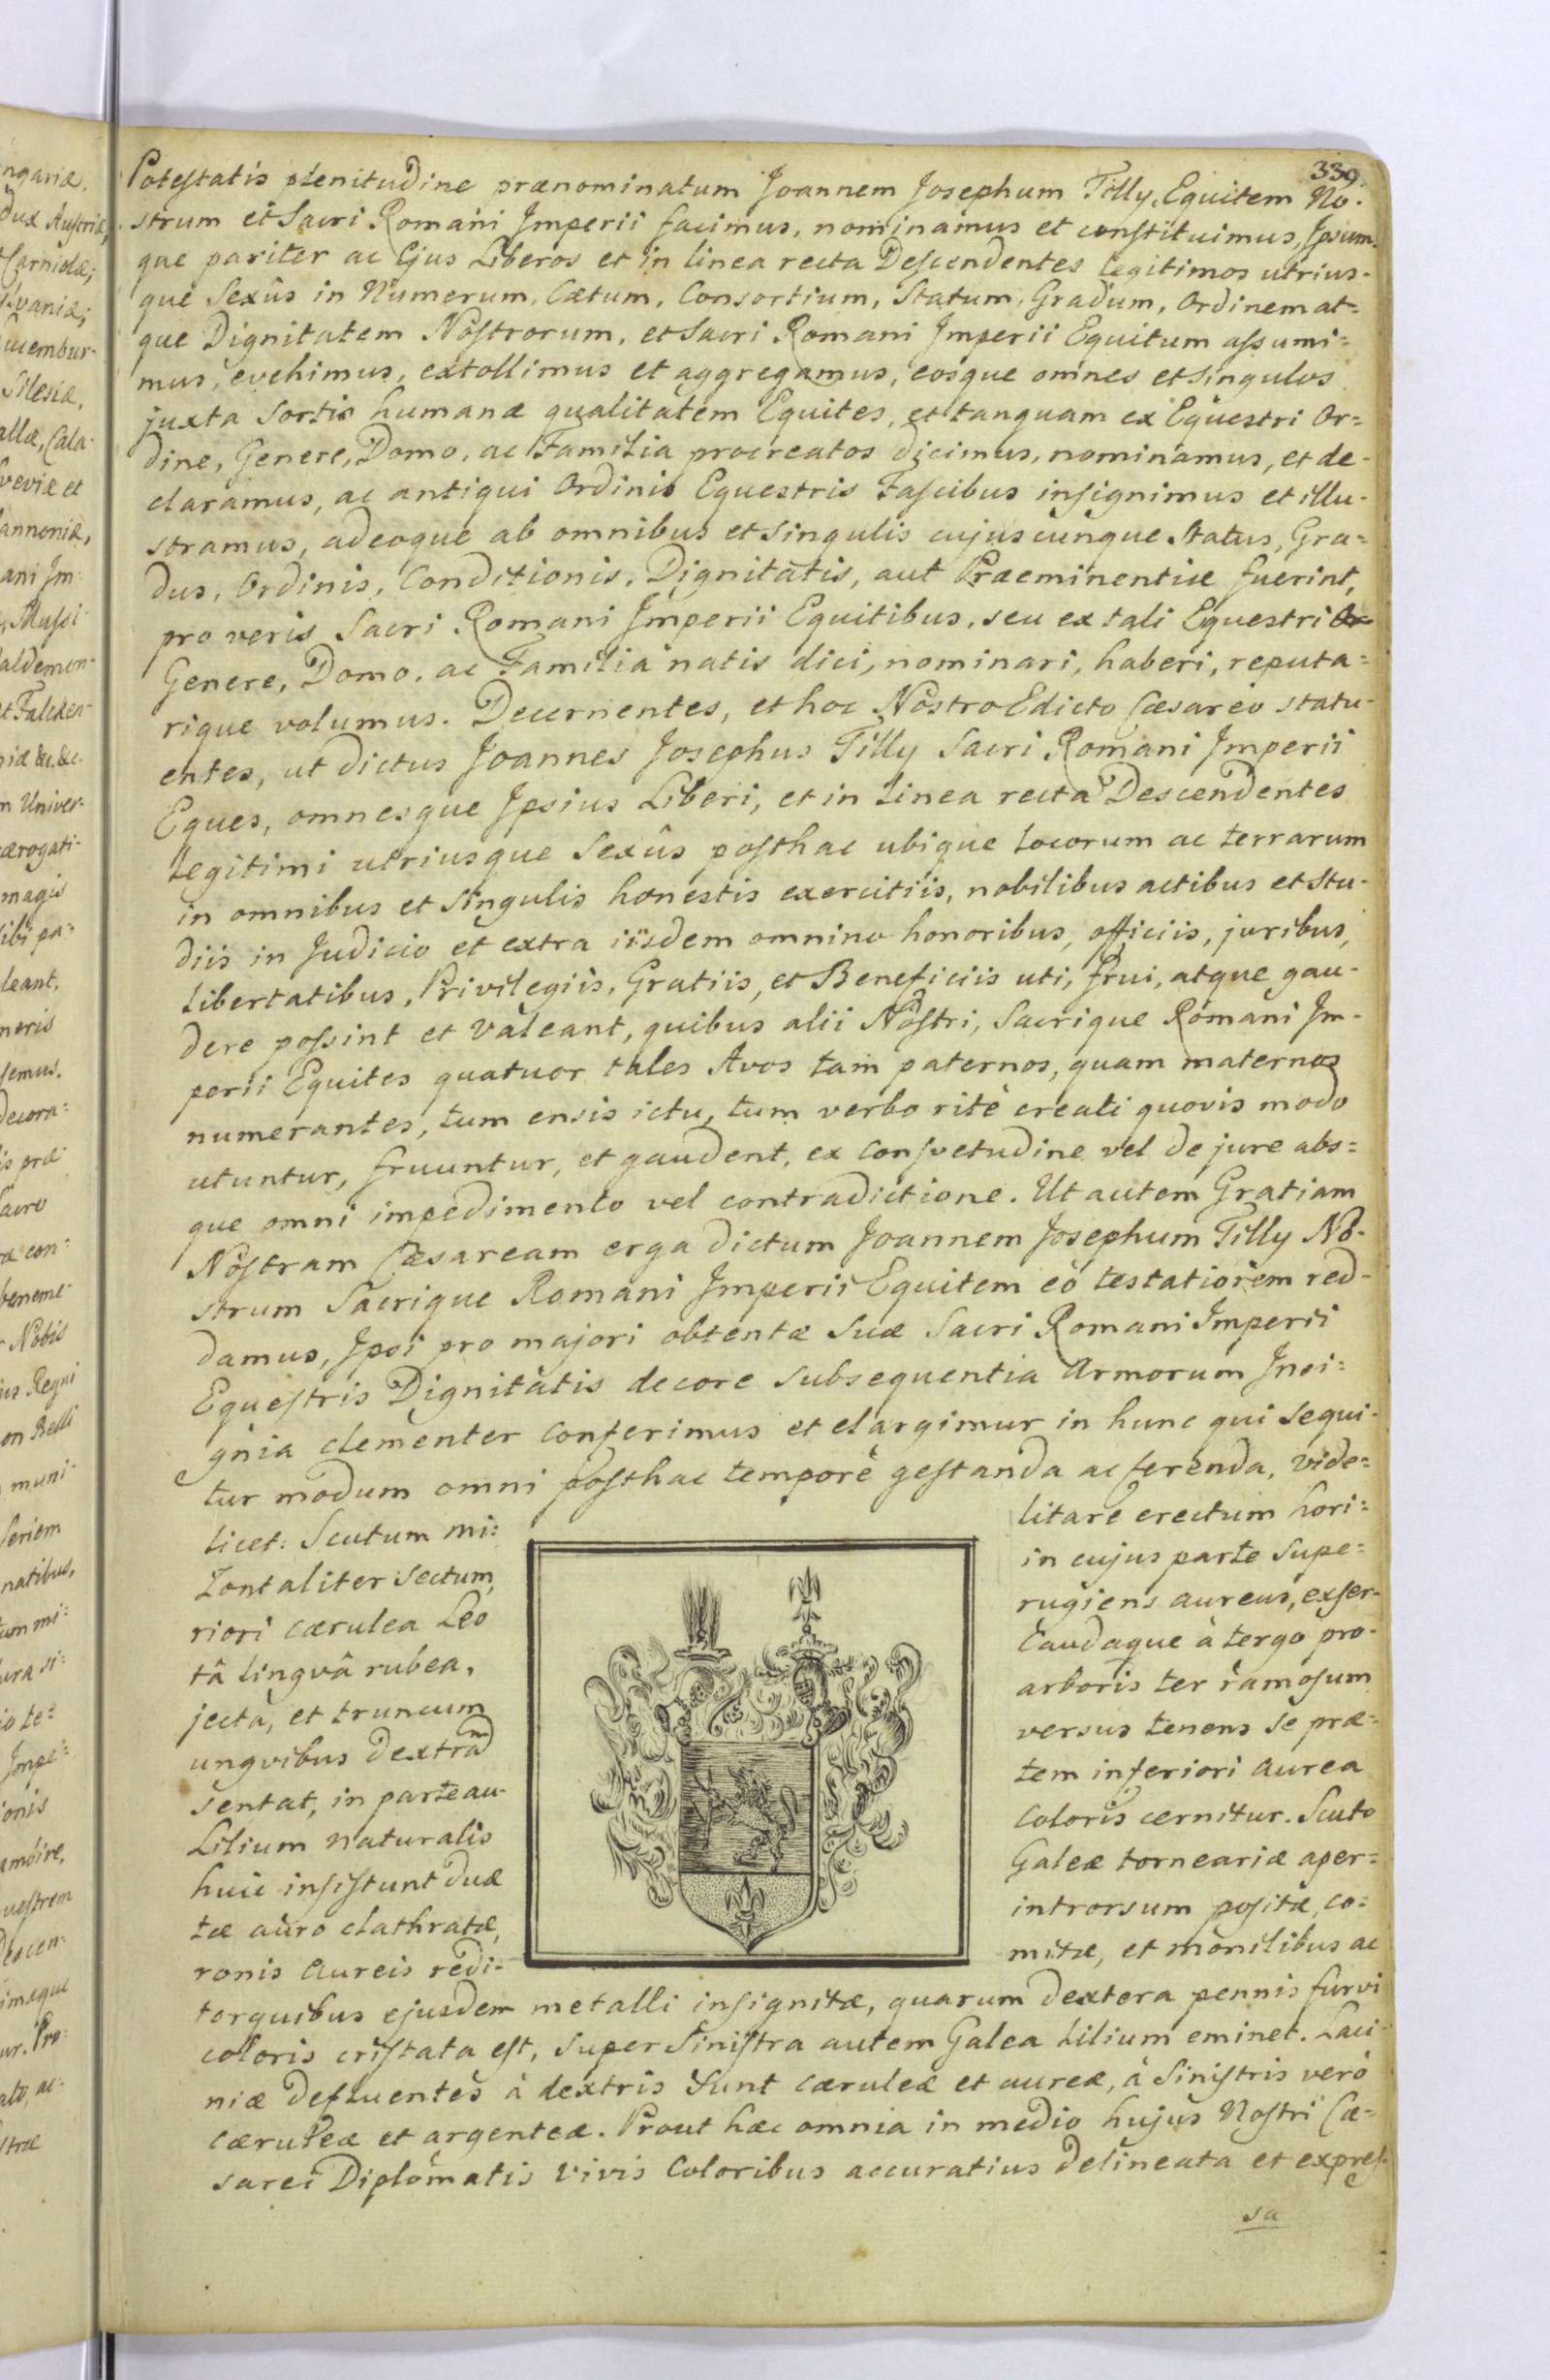 339.
Potestatis plenitudine prænominatum Joannem Josephum Tilly, Equitem No-
strum et Sacri Romani Imperii facimus, nominamus et constituimus, Ipsum-
que pariter ac Ejus Liberos et in linea recta Descendentes legitimos utrius-
que Sexûs in Numerum, Cætum, Consortium, Statum, Gradum, Ordinem at-
que Dignitatem Nostrorum, et Sacri Romani Imperii Equitum assumi=
mus, evehimus, extollimus et aggregamus, eosque omnes et singulos
juxta Sortis humanæ qualitatem Equites, et tanquam ex Equestri Or=
dine, Genere, Domo, ac Familia procreatos dicimus, nominamus, et de-
claramus, ac antiqui Ordinis Equestris Fascibus insignimus et illu-
stramus, adeoque ab omnibus et singulis cujuscunque Status, Gra=
dus, Ordinis, Conditionis, Dignitatis, aut Præeminentiæ fuerint,
pro veris Sacri Romani Imperii Equitibus, seu ex tali Equestri
Genere, Domo, ac Familia natis dici, nominari, haberi, reputa=
rique volumus. Decernentes, et hoc Nostro Edicto Cæsareo statu-
entes, ut dictus Joannes Josephus Tilly Sacri Romani Imperii
Eques, omnesque Ipsius Liberi, et in Linea recta Descendentes
Legitimi utriusque Sexûs posthac ubique locorum ac terrarum
in omnibus et singulis honestis exercitiis, nobilibus actibus et Stu-
diis in Judicio et extra iisdem omnino honoribus, officiis, juribus,
Libertatibus, Privilegiis, Gratiis, et Beneficiis uti, frui, atque gau-
dere possint et valeant, quibus alii Nostri, Sacrique Romani Im-
perii Equites quatuor tales Avos tam paternos, quam maternos
numerantes, tum ensis ictu, tum verbo ritè creati quovis modo
utuntur, fruuntur, et gaudent, ex consvetudine vel de jure abs=
que omni impedimento vel contradictione. Ut autem Gratiam
Nostram Cæsaream erga dictum Joannem Josephum Tilly No-
strum Sacrique Romani Imperii Equitem eò testatiorem red-
damus, Ipsi pro majori obtentæ suæ Sacri Romani Imperii
Equestris Dignitatis decore subsequentia Armorum Insi=
gnia clementer conferimus et elargimur in hunc qui sequi-
tur modum omni posthac tempore gestanda ac ferenda, vide=
licet: Scutum mi= litare erectum hori=
zontaliter sectum, in cujus parte supe=
riori cærulea Leo rugiens aureus, exser-
tâ lingvâ rubea, Caudaque à tergo pro-
jectâ, et truncum arboris ter ramosum
ungvibus dextram versus tenens se præ=
sentat, in parte au- tem inferiori aurea
Lilium naturalis Coloris cernitur. Scuto
huic insistunt duæ Galeæ torneariæ aper=
tæ auro clathratæ, introrsum positæ, co=
ronis aureis redi= mitæ, et monilibus ac
torquibus ejusdem metalli insignitæ, quarum dextera pennis furvi
coloris cristata est, super Sinistra autem Galea Lilium eminet. Laci-
niæ defluentes à dextris sunt cæruleæ et aureæ, à Sinistris verò
cæruleæ et argenteæ. Prout hæc omnia in medio hujus Nostri Cæ=
sarei Diplomatis vivis Coloribus accuratius delineata et expres-
sa